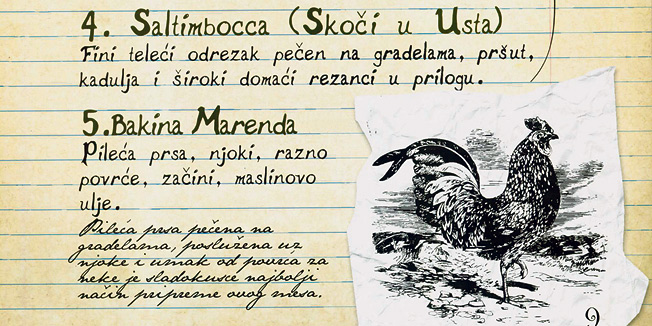 4. Saltimbocca (Skoči u Usta)
Fini teleći odrezak pečen na gradelama, pršut,
kadulja i široki domaći rezanci u prilogu.
5. Bakina Marenda
Pileća prsa, njoki, razno
povrće, začini, maslinovo
ulje.
Pileća prsa pečena na
gradelama, poslužena uz
njoke i umak od povrća za
neke je sladokusce najbolji
način pripreme ovog mesa.
9